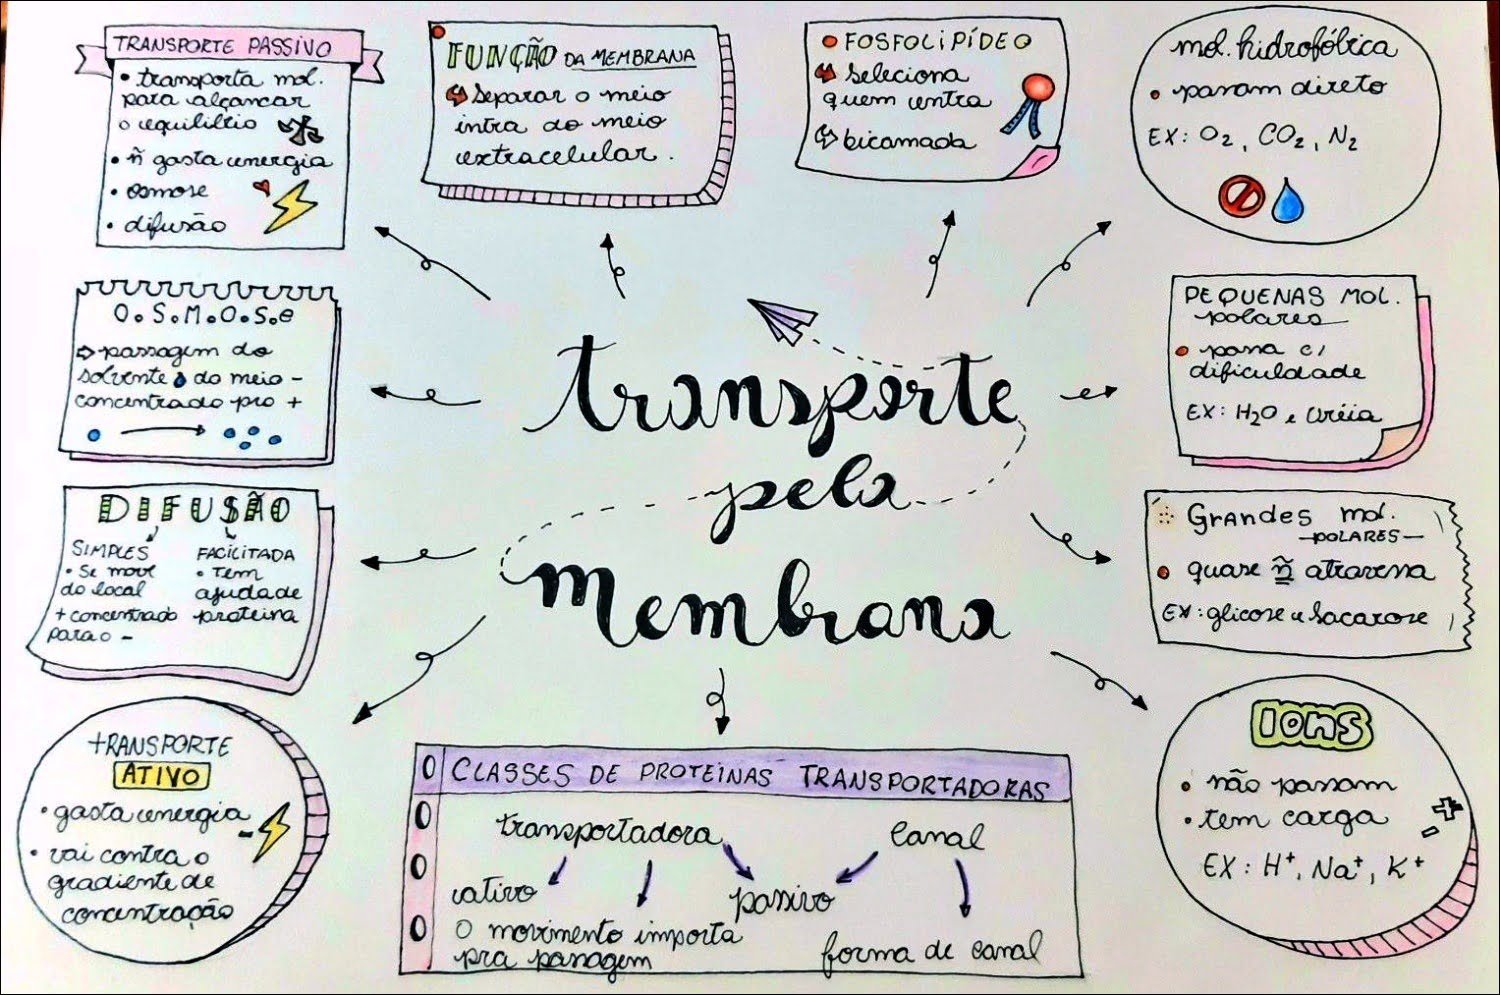 TRANSPORTE PASSIVO
• transporta mol.
para alcançar
o equilíbrio
• ñ gasta energia
• osmose
• difusão
FUNÇÃO DA MEMBRANA
separar o meio
intra do meio
extracelular.
FOSFOLIPÍDEO
seleciona
quem entra
bicamada
mol. hidrofóbica
• passam direto
EX: O2, CO2, N2
O.S.M.O.S.e
⇨ passagem do
solvente do meio -
concentrado pro +
PEQUENAS MOL.
polares
• passa c/
dificuldade
EX: H2O e uréia
transporte
pela
membrana
DIFUSÃO
SIMPLES
• Se move
do local
+ concentrado
para o -
FACILITADA
• Tem
ajuda de
proteína
Grandes mol.
-POLARES-
• quase ñ atravessa
EX: glicose e sacarose
TRANSPORTE
ATIVO
• gasta energia
• vai contra o
gradiente de
concentração
CLASSES DE PROTEÍNAS TRANSPORTADORAS
transportadora
canal
ativo
passivo
o movimento importa
pra passagem
forma de canal
Ions
• não passam
• tem carga
EX: H+, Na+, K+